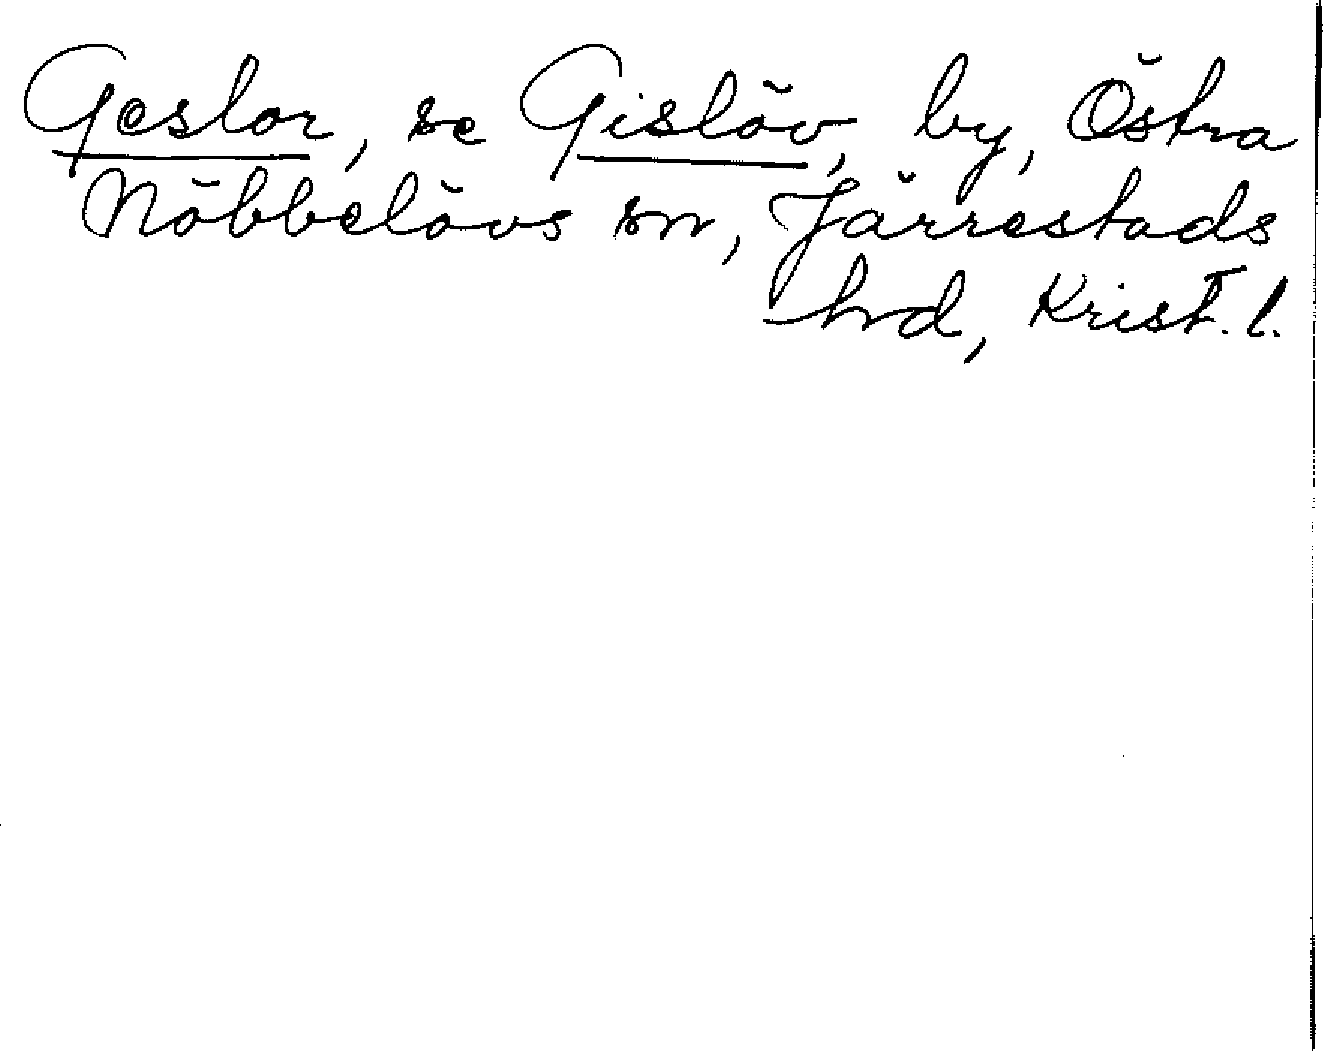 Geslor, se Gislöv, by, Östra
Nöbbelövs sn, Järrestads
hrd, Krist. l.